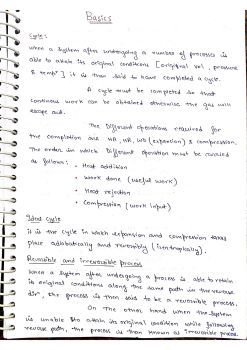 Basics
Cycle:
When a System after undergoing a number of processes is
able to attain its original conditions [original vol, pressure
& temp] it is then said to have completed a cycle.
A cycle must be completed so that
continous work can be obtained otherwise the gas will
escape out.
The Different operations required for
the completion are HA, HR, WD (expansion) & compression.
The order in which Different operation must be carried
as follows: • Heat addition
• Work done (useful work)
• Heat rejection
• Compression (work input)
Ideal cycle
It is the cycle in which expansion and compression takes
place adiabatically and reversibly (isentropically).
Reversible and irreversible process
When a System after undergoing a process is able to retain
its original conditions along the same path in the reverse
dirn, the process is then said to be a reversible process.
On the other hand when the system
is unable to attain its original condition while following
reverse path, the process is then known as irreversible process